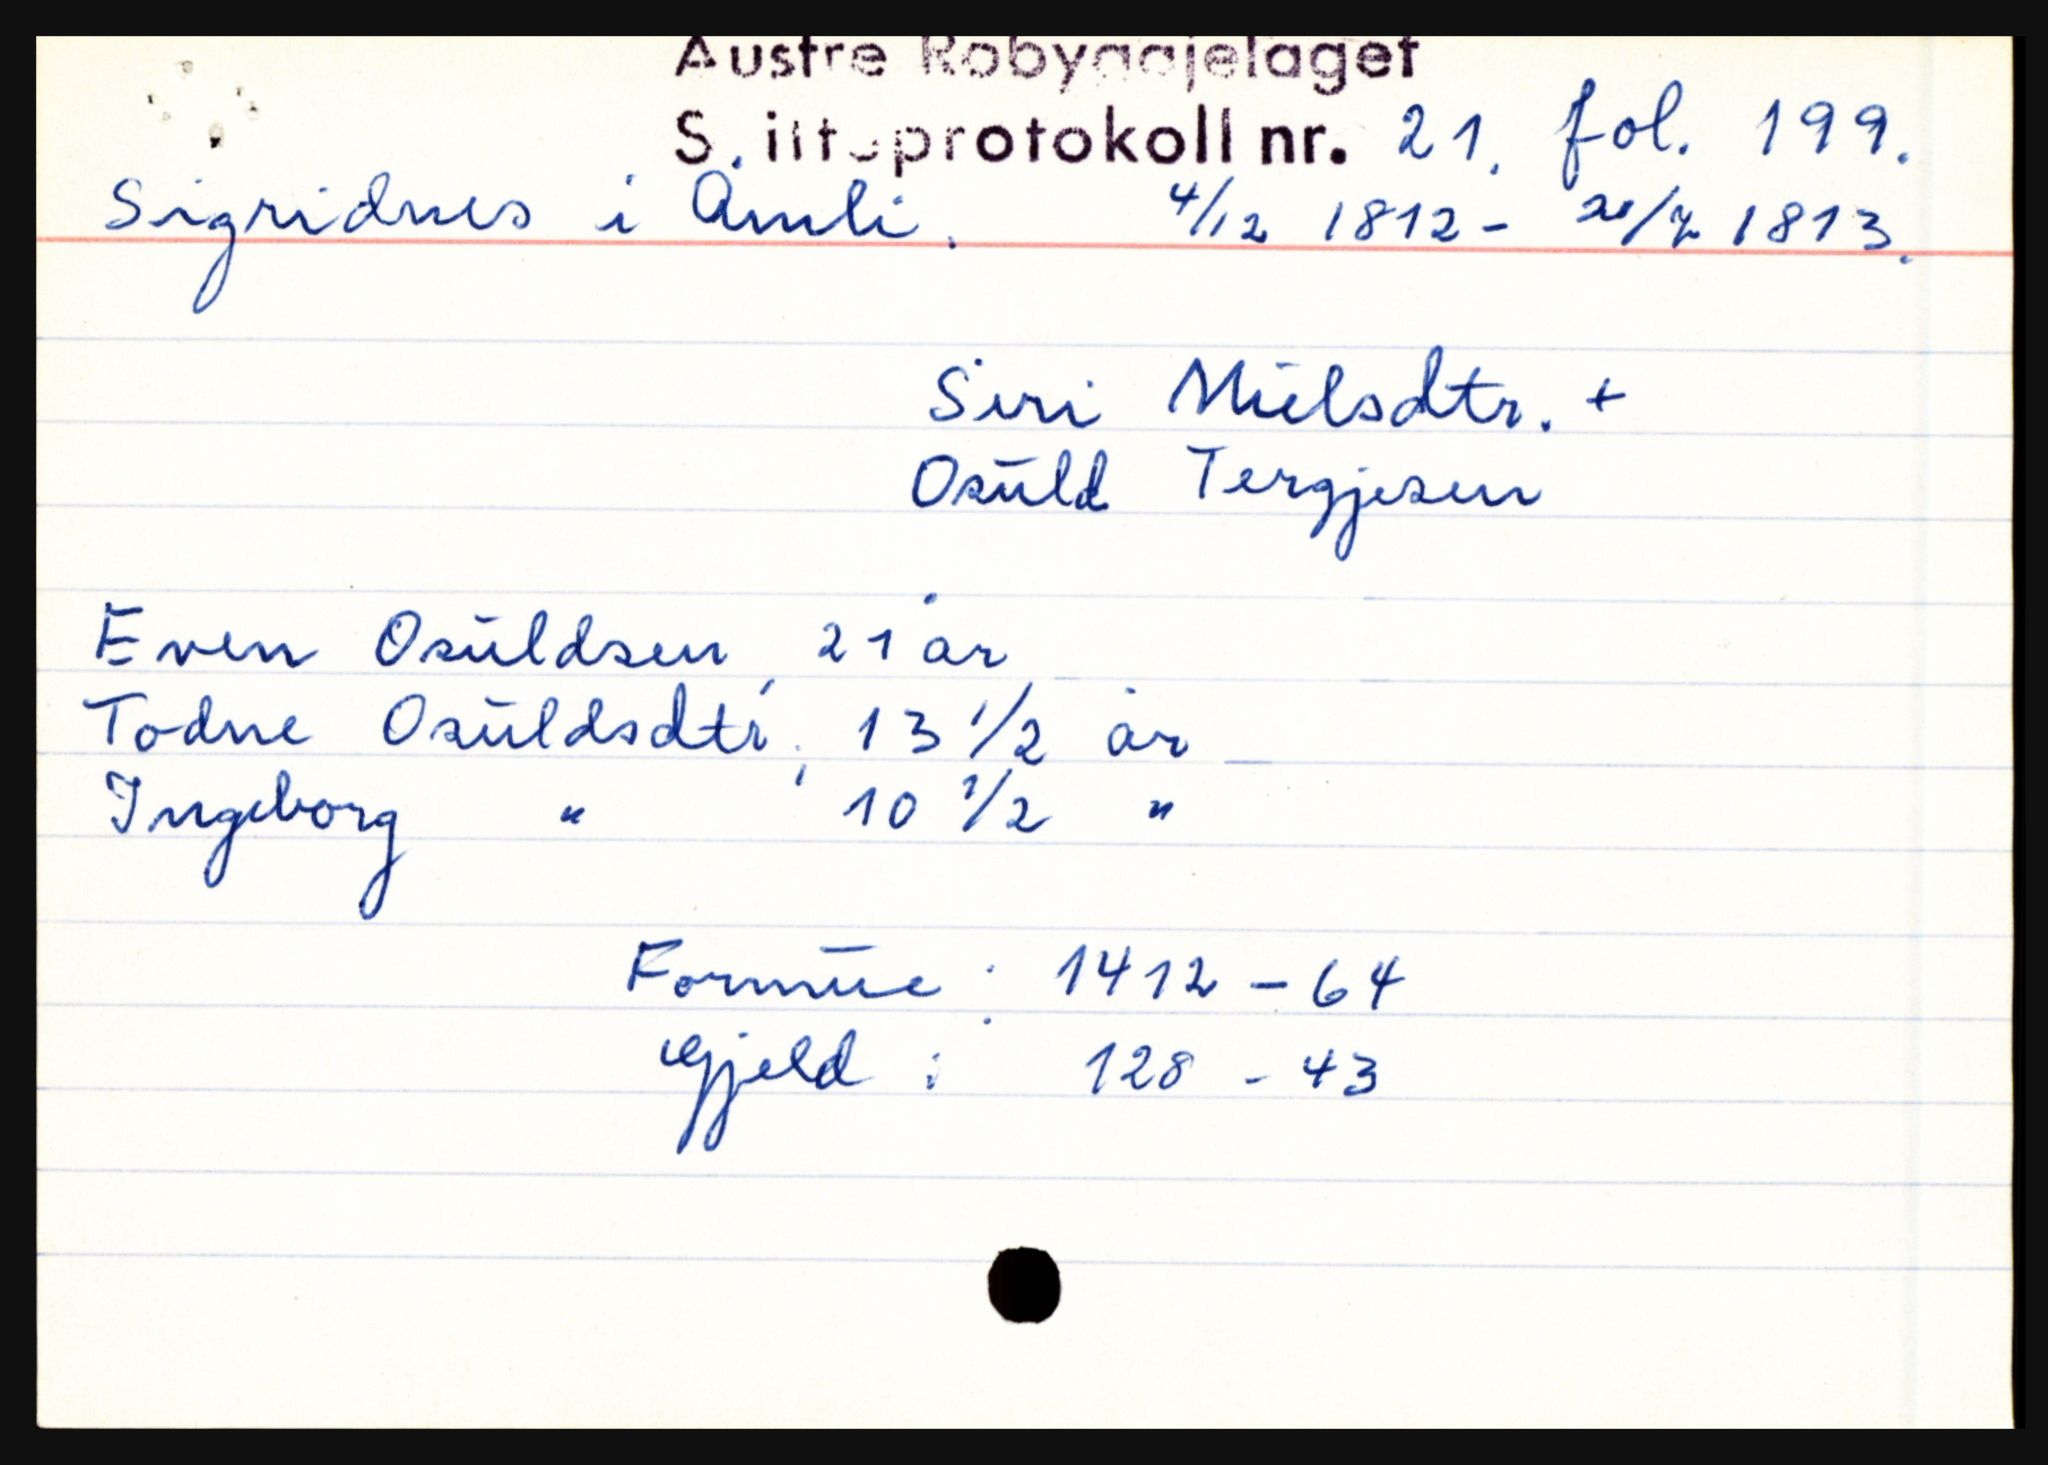 Austre Robyggjelaget
S.iftsprotokoll nr. 21. fol. 199.
Sigridnes i Åmli. 4/12 1812 - /7 1813.
Siri Nielsdtr. +
Osuld Tergjesen
Even Osuldsen, 21 år
Todne Osuldsdtr., 13 1/2 år
Ingeborg " , 10 1/2 "
Formue : 1412 - 64
Gjeld : 128 - 43